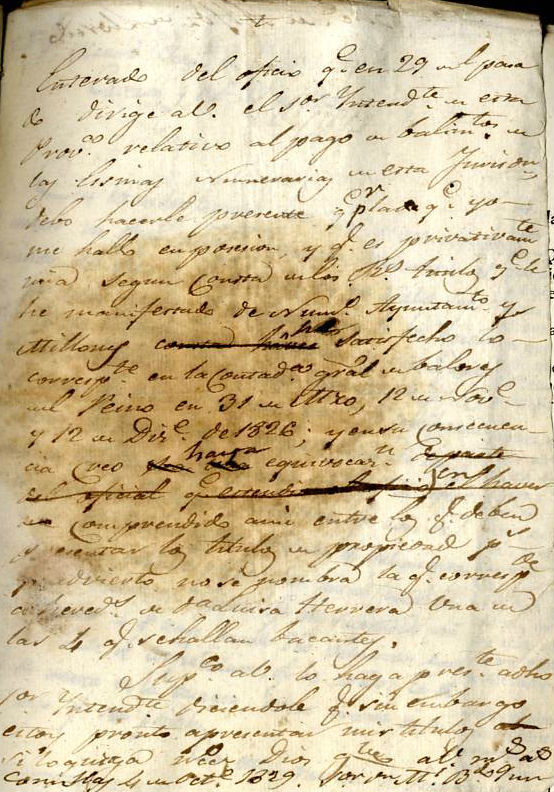 Enterado del oficio q.e en 29 del pasa
do dirige a V. el S.or Yntend.te de esta
Prov.a relativo al pago de
las Numerarias de esta Jurison,
debo hacerle presente q.e p.r la de q.e yo
me hallo en posesion, y q.e es privativam.te
mia segun consta de los R.s titulos q.e le
he manifestado de Num.o Ayuntam.to y
Millones satisfecho lo
corresp.te en la Contad.a gral de Valores
del Reino en 31 de 12 de Nov.e
y 12 de Diz.e de 1826; y en su consecuen
cia creo haya equivocac.n de parte
del oficial q.e estendio en el haver
comprendido a mi entre los q.e deben
presentar los titulos de propiedad p.s
q.e advierto no se nombra la q.e corresp.de
a hered.s de D.a Luisa Herrera una de
las 4 q.e se hallan bacantes.
Sup.co a V. lo haga pres.te a dho
S.or Yntend.te diciendole q.e sin embargo
estoy pronto a presentar mis titulos
si lo quiere Dios g.e a V. m.s a.s
Comillas 4 de Oct.e 1829.